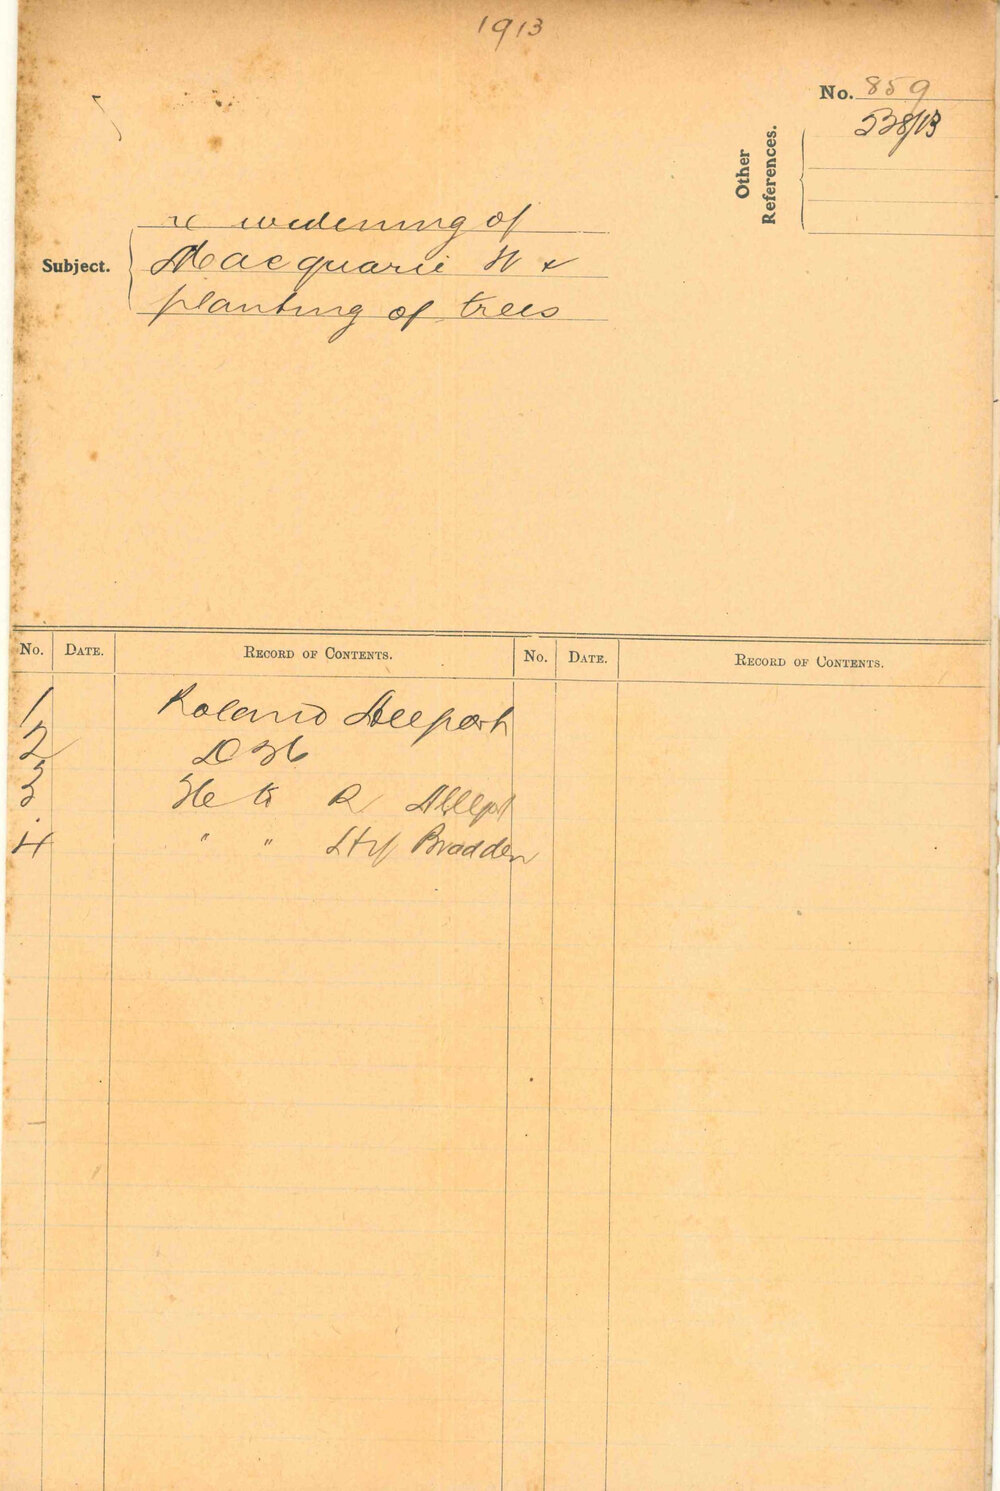 1913
No. 859
Other References.
Subject.
re widening of
Macquarie St &
planting of trees
No. DATE. RECORD OF CONTENTS. No. DATE. RECORD OF CONTENTS.
1 Roland
2
3 to R
4 " " Hy Bradden